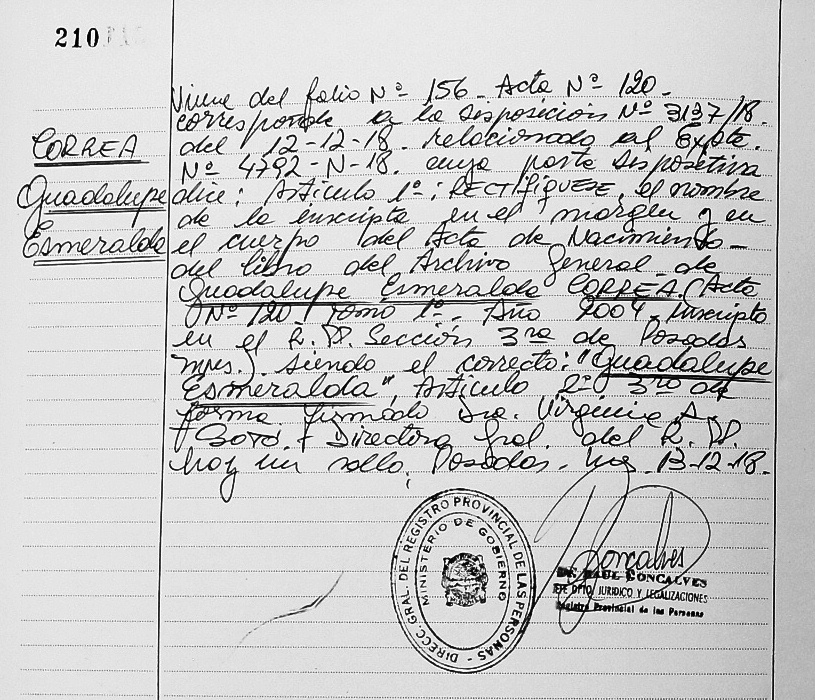 210
CORREA
Guadalupe
Esmeralda
Viene del folio Nº 156 - Acta Nº 120 -
corresponde a la Disposición Nº 3137/18.
del 12-12-18. relacionado al Expte.
Nº 4792-N-18. cuya parte dispositiva
dice: Artículo 1º: RECTIFIQUESE, el nombre
de la inscripta en el margen y en
el cuerpo del Acta de Nacimiento -
del libro del Archivo General de
Guadalupe Esmeralda CORREA. (Acta
Nº 120, tomo 1º. Año 2004. inscripto
en el R.P. Sección 3ra de Posadas
mnes.) siendo el correcto: "Guadalupe
Esmeralda", Artículo 2º 3ro de
forma firmado Dra. Virginia A.
Directora Gral. del R.P.
hay un sello. Posadas. Mes. 13-12-18.
DIRECC. GRAL. DEL REGISTRO PROVINCIAL DE LAS PERSONAS -
MINISTERIO DE GOBIERNO
Goncalves
DR. RAUL GONCALVES
JEFE DPTO JURIDICO Y LEGALIZACIONES
Registro Provincial de las Personas